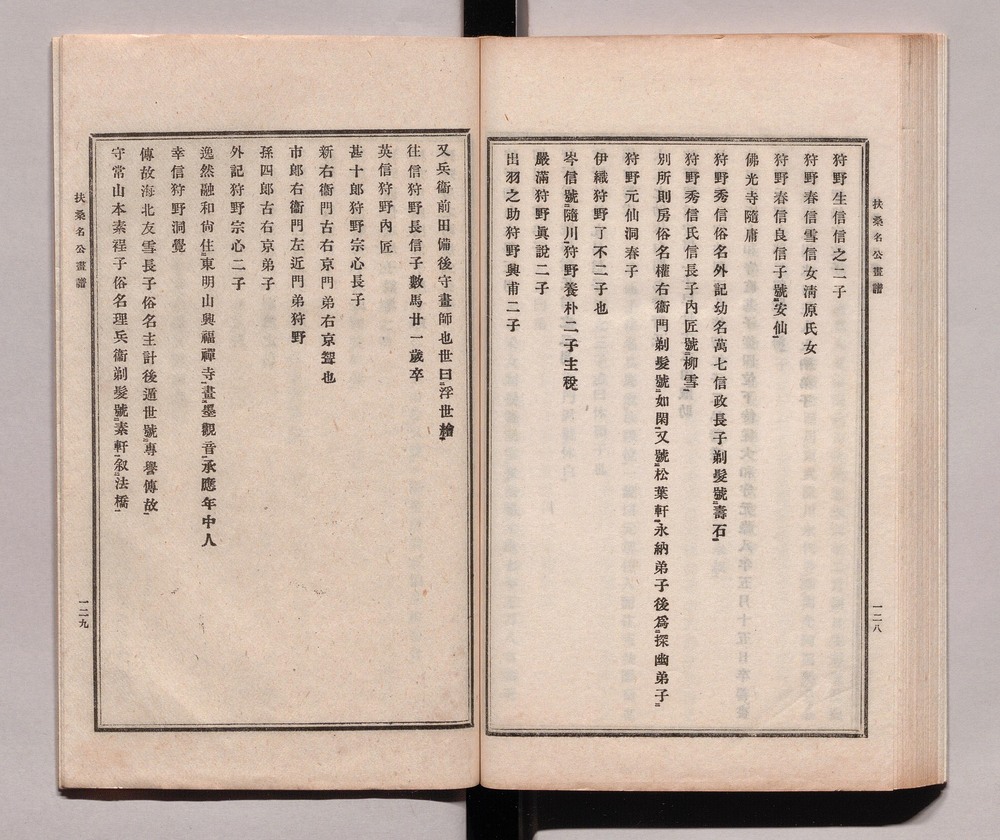 扶桑名公畫譜
一二八
狩野生信信之二子
狩野春信雪信女淸原氏女
狩野春信良信子號安仙
佛光寺隨庸
狩野秀信俗名外記幼名萬七信政長子剃髮號壽石
狩野秀信氏信長子內匠號柳雪
別所則房俗名權右衞門剃髮號如閑又號松葉軒永納弟子後爲探幽弟子
狩野元仙洞春子
伊織狩野了不二子也
岑信號隨川狩野養朴二子主稅
嚴滿狩野眞說二子
出羽之助狩野興甫二子
又兵衞前田備後守畫師也世曰浮世繪
往信狩野長信子數馬廿一歲卒
英信狩野內匠
甚十郞狩野宗心長子
新右衞門古右京門弟右京聟也
市郞右衞門左近門弟狩野
孫四郞古右京弟子
外記狩野宗心二子
逸然融和尙住東明山興福禪寺畫墨觀音承應年中人
幸信狩野洞覺
傳故海北友雪長子俗名主計後遁世號專譽傳故
守常山本素程子俗名理兵衞剃髮號素軒叙法橋
扶桑名公畫譜
一二九